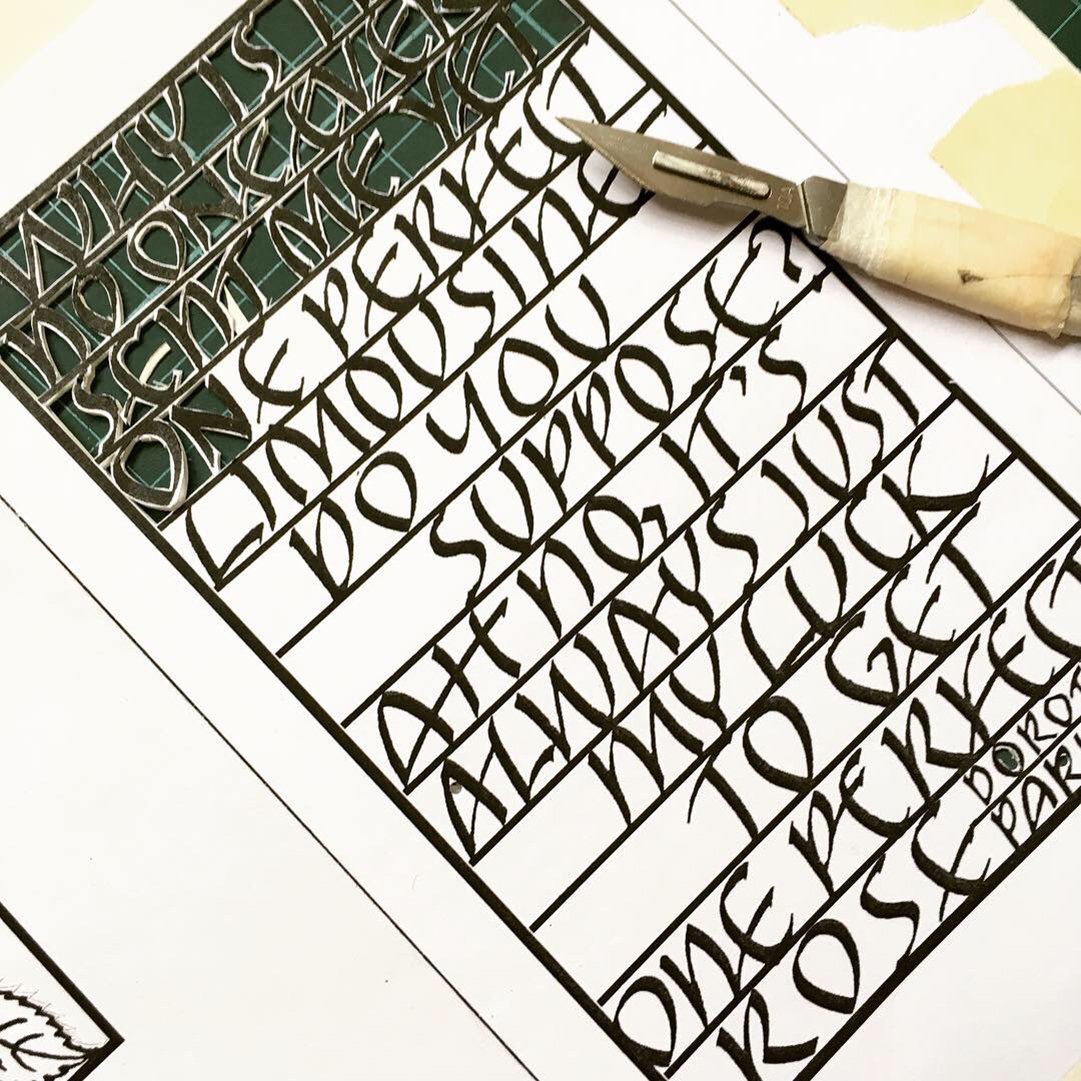 WHY IS I
NO ONE EVER
SENT ME YET
ONE PERFECT
LIMOUSINE
DO YOU
SUPPOSE?
AH NO, IT'S
ALWAYS JUST
MY LUCK
TO GET
ONE PERFECT
ROSE
DOROT
PAR